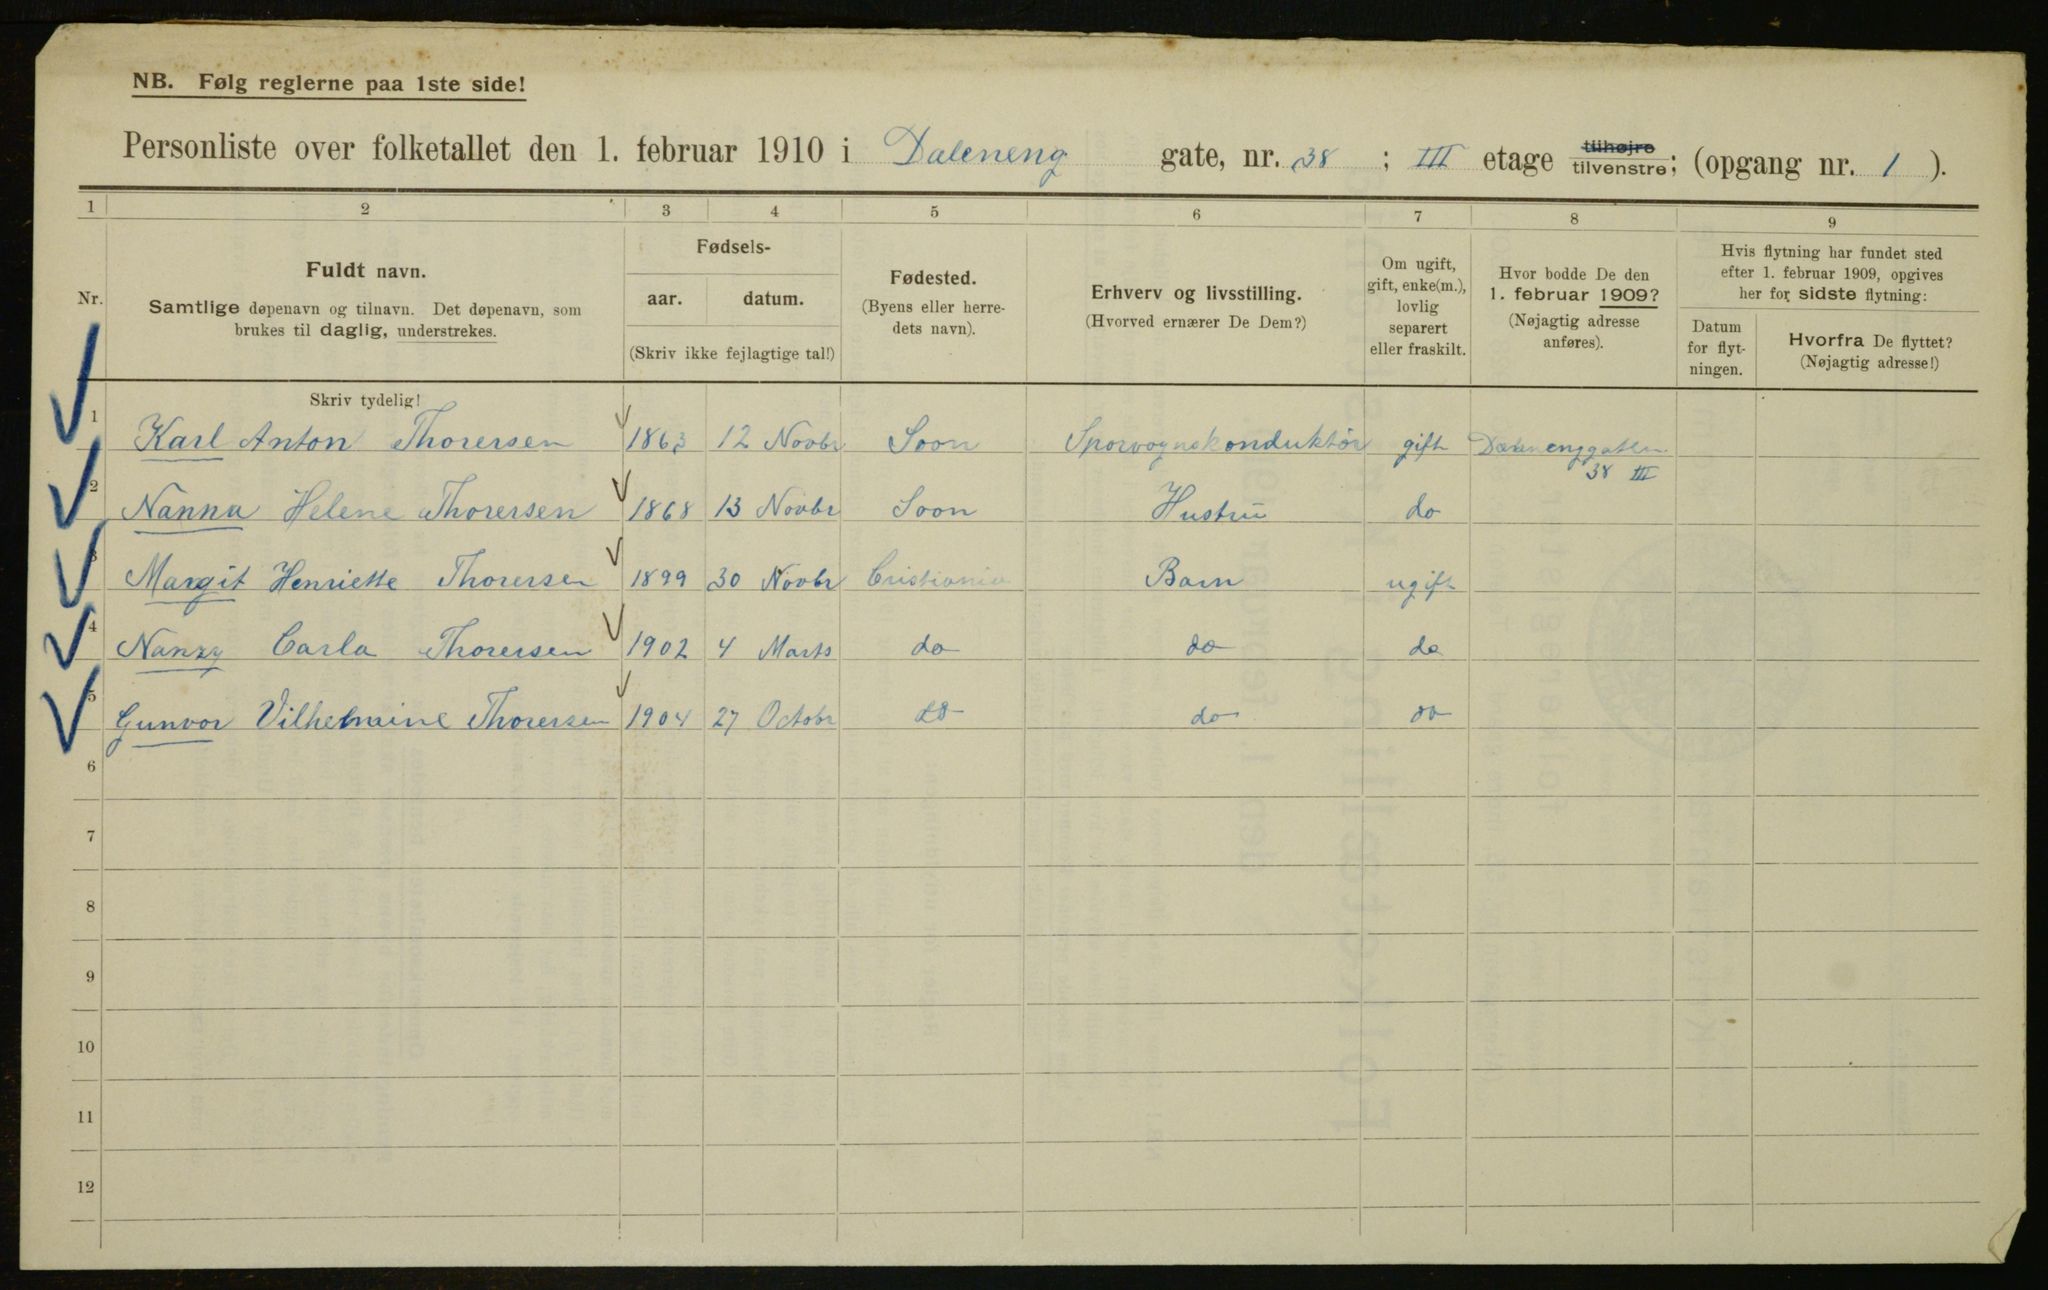 NB. Følg reglerne paa 1ste side!
Personliste over folketallet den 1. februar 1910 i Daleneng gate, nr. 38 ; III etage tilhøjre tilvenstre; (opgang nr. 1 ).
1 2 3 4 5 6 7 8 9
Nr.
Fuldt navn.
Samtlige døpenavn og tilnavn. Det døpenavn, som
brukes til daglig, understrekes.
Skriv tydelig!
Fødsels-
aar. datum.
(Skriv ikke fejlagtige tal!)
Fødested.
(Byens eller herre-
dets navn).
Erhverv og livsstilling.
(Hvorved ernærer De Dem?)
Om ugift,
gift, enke(m.),
lovlig
separert
eller fraskilt.
Hvor bodde De den
1. februar 1909?
(Nøjagtig adresse
anføres).
Hvis flytning har fundet sted
efter 1. februar 1909, opgives
her for sidste flytning:
Datum
for flyt-
ningen.
Hvorfra De flyttet?
(Nøjagtig adresse!)
1 Karl Anton Thorersen 1863 12 Novbr Soon Sporvognskonduktør gift Dælenenggaten
38 III
2 Nanna Helene Thorersen 1868 13 Novbr Soon Hustru do
3 Margit Henriette Thorersen 1899 30 Novbr Cristiania Barn ugift
4 Nanzy Carla Thorersen 1902 4 Marts do do do
5 Gunvor Vilhelmine Thorersen 1904 27 Octobr do do do
6
7
8
9
10
11
12